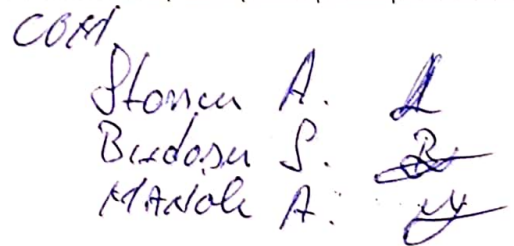 COM
Stoian A.
Burdasu S.
MANOLE A.